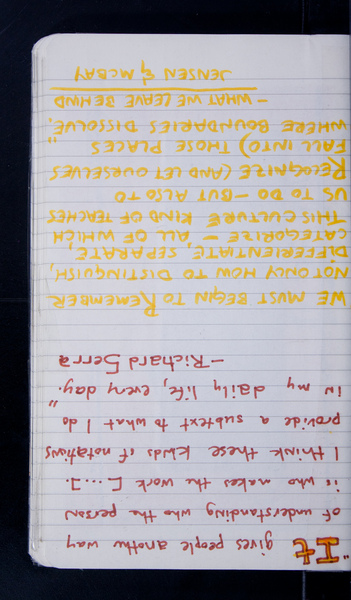 "It gives people another way
of understanding who the person
is who makes the work [...].
I think these kinds of notations
provide a subtext to what I do
in my daily life, every day."
—Richard Serra
WE MUST BEGIN TO REMEMBER
NOT ONLY HOW TO DISTINGUISH,
DIFFERENTIATE, SEPARATE,
CATEGORIZE — ALL OF WHICH
THIS CULTURE KIND OF TEACHES
US TO DO — BUT ALSO TO
RECOGNIZE (AND LET OURSELVES
FALL INTO) THOSE PLACES
WHERE BOUNDARIES DISSOLVE."
—WHAT WE LEAVE BEHIND
JENSEN & MCBAY